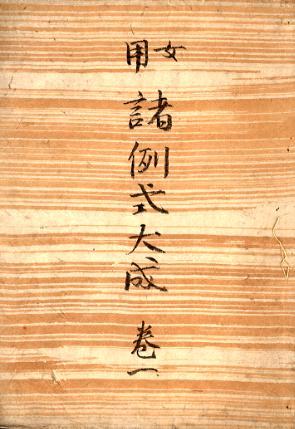 女用
諸例式大成 巻一